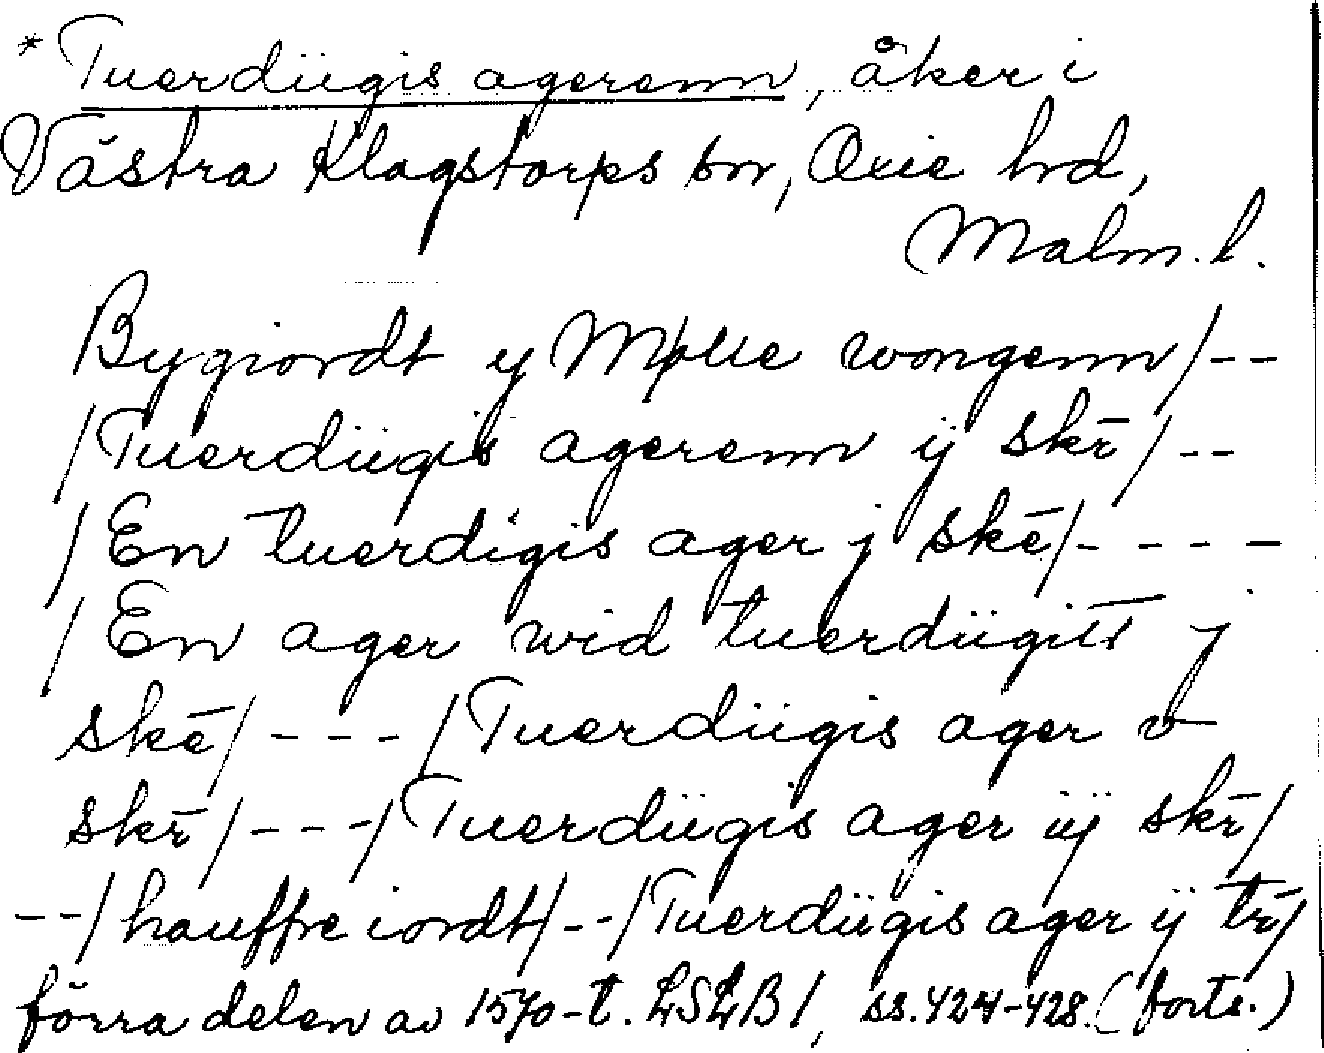 * Tuerdügis agerenn, åker i
Västra Klagstorps sn, Oxie hd,
Malm. l.
Bygiordt y Mølle wongenn/--
/Tuerdügis agerenn ij skr̄/--
/En tuerdigis ager j skē/----
/En ager wid tuerdügits j
skē/---/Tuerdügis ager v
skr̄/---/Tuerdügis ager iij skr̄/
--/hauffre iordt/--/Tuerdügis ager ij tr̄/
förra delen av 1570-t. LSLB 1, ss. 424-428. (forts.)